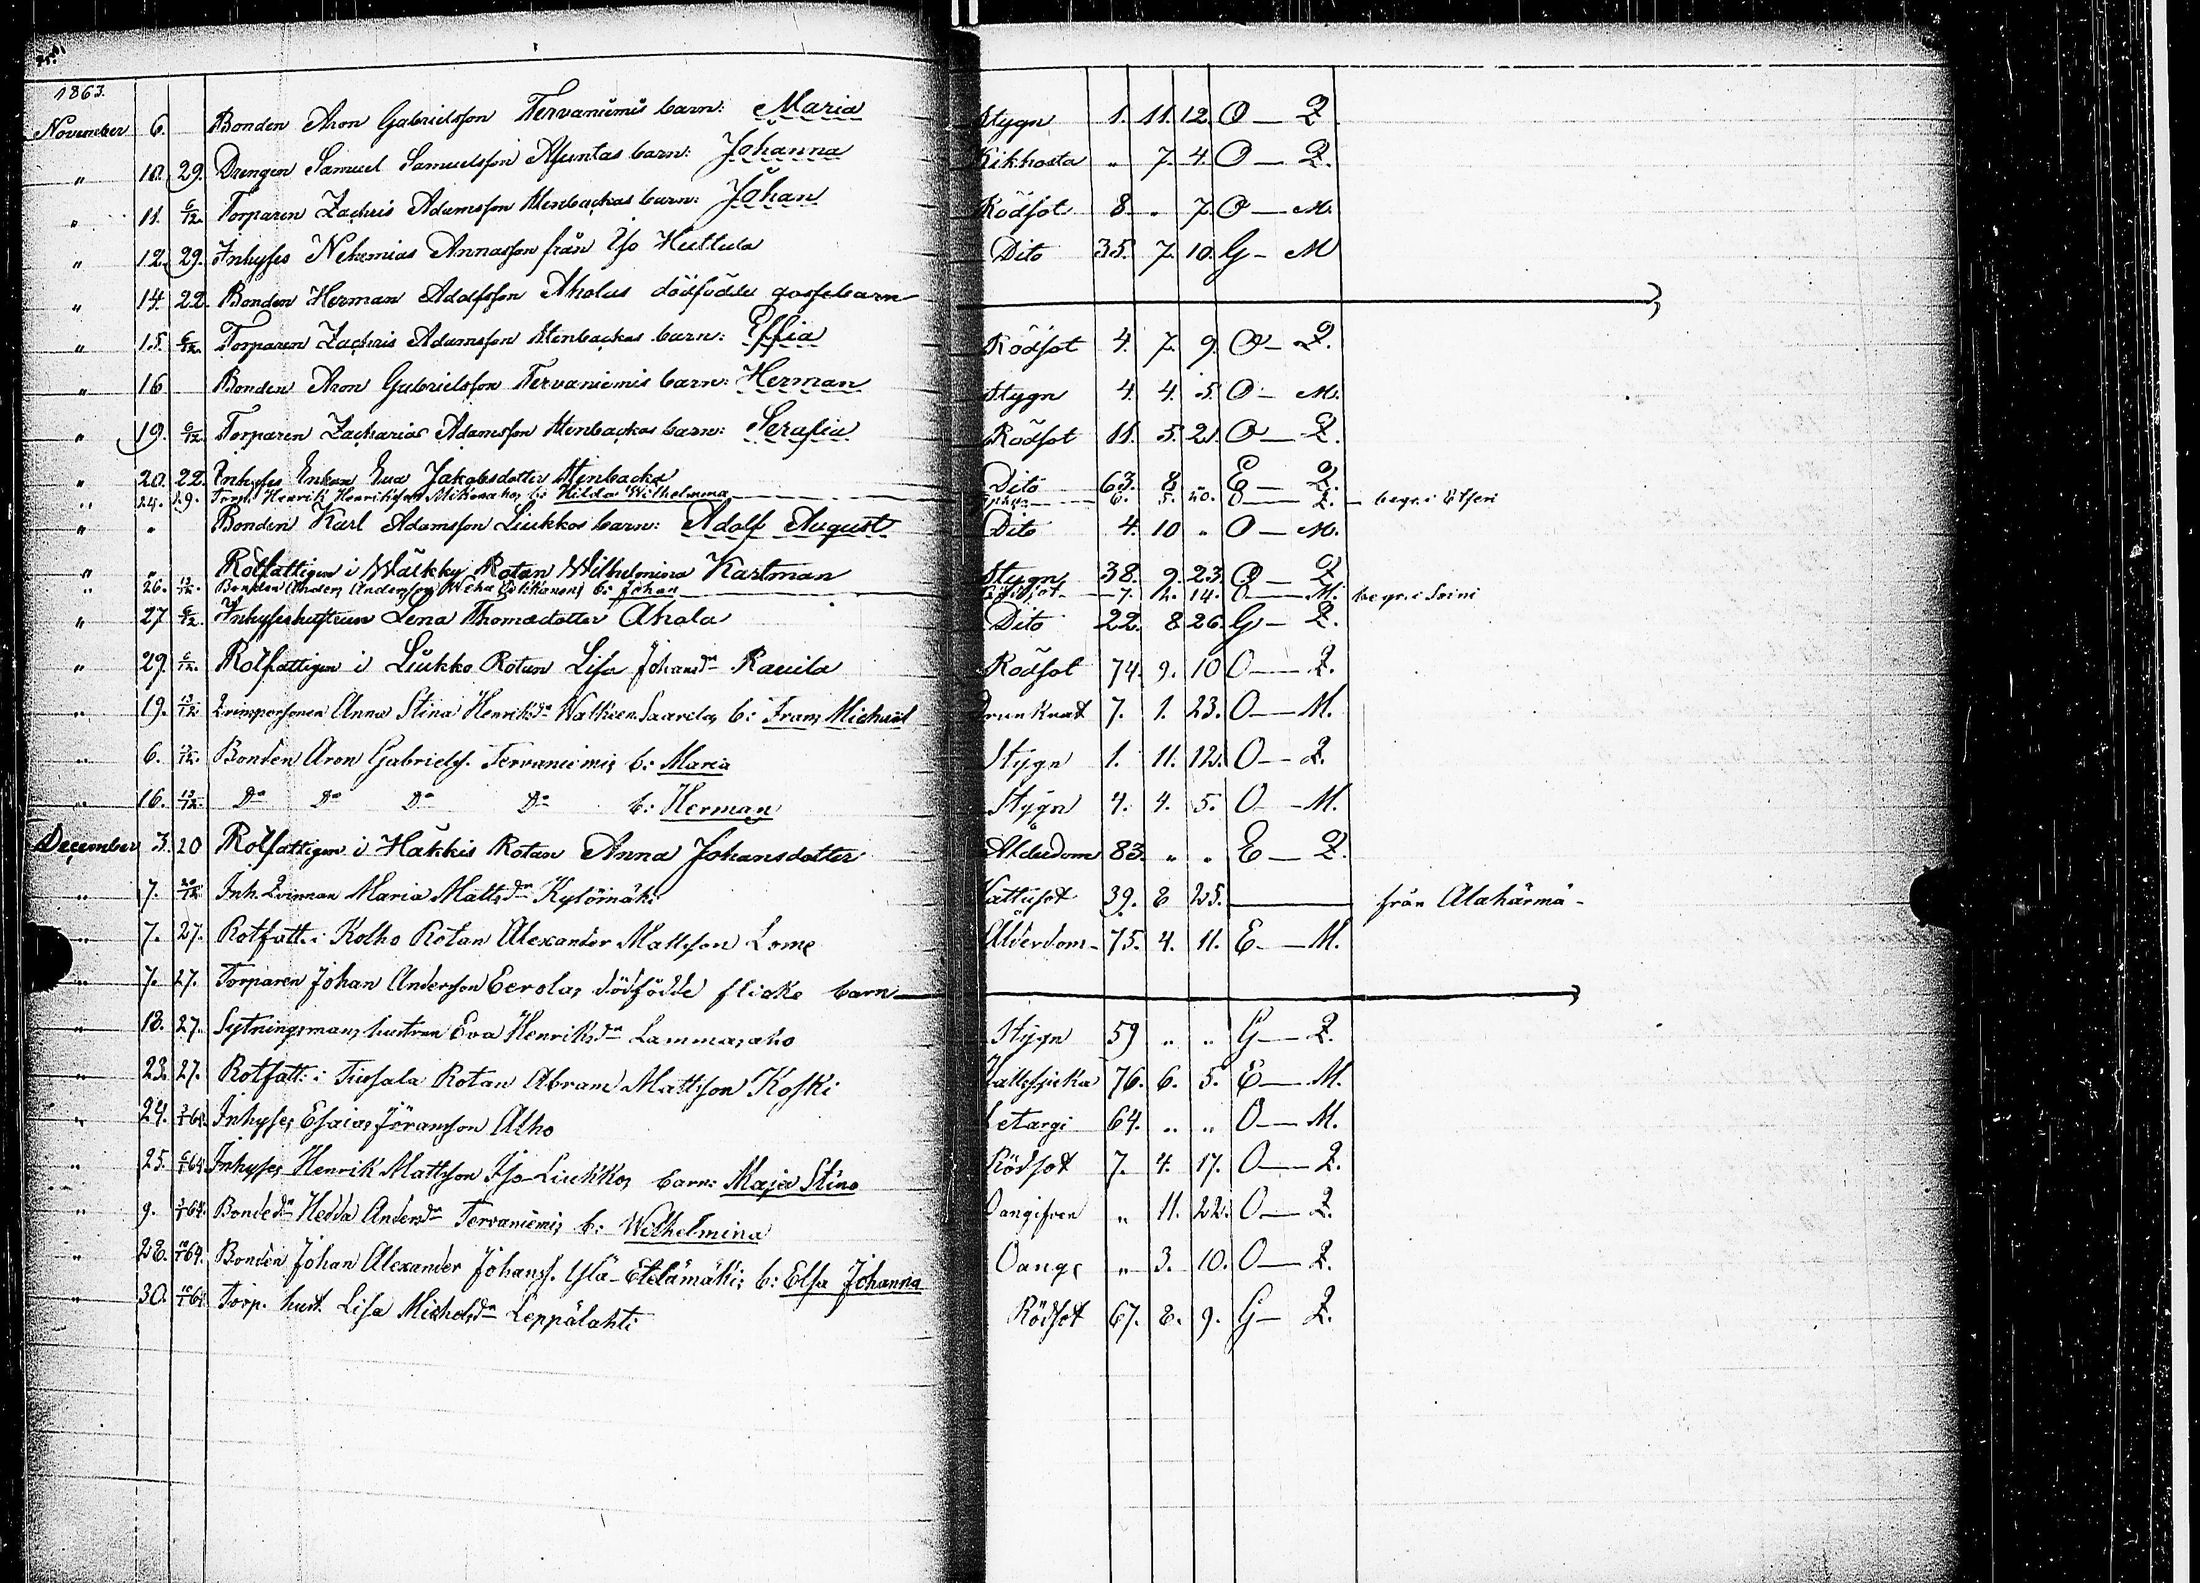 1863.
November 6. Bonden Aron Gabrielsson Tervaniemis barn: Maria Stygn 1. 11. 12. O — Q.
" 10. 29. Drengen Samuel Samuelsson Asuntas barn: Johanna Kikhosta " 7. 4. O — Q.
" 11. 6/12. Torparen Zachris Adamsson Stenbackas barn: Johan Rödsot 8 " 7. O — M.
" 12. 29. Inhyses Nehemias Annasson från Iso Huttula Dito 35. 7. 10. G — M
" 14. 22. Bonden Herman Adolfsson Aholas dödfödde gossebarn
" 15. 6/12. Torparen Zachris Adamsson Stenbackas barn: Effia Rödsot 4. 7. 9. O — Q.
" 16 Bonden Aron Gabrielsson Tervaniemis barn: Herman Stygn 4. 4. 5. O — M.
" 19. 6/12. Torparen Zacharias Adamsson Stenbackas barn: Serafia Rödsot 11. 5. 21. O — Q.
" 20. 22. Inhyses Enkan Eva Jakobsdotter Stenbacka Dito 63. 8. " E — Q.
" 24. 29. Torp. Henrik Henriksson b: Hilda Wilhelmina 6. 5. 20. O — Q. begr. i Etseri
" " Bonden Karl Adamsson Liukkos barn: Adolf August Dito 4. 10 " O — M.
" " Rotfattigen i Wälkky Rotan Wilhelmina Kartman Stygn 38. 9. 23. O — Q
" 26. 13/12. Bonden Anders Andersson b: Johan Rödsot 7. 12. 14. O — M. begr. i Soini
" 27 6/12. Inhyseshustrun Lena Thomasdotter Ahola Dito 22. 8 26. G — Q.
" 29. 6/12. Rotfattigen i Liukko Rotan Lisa Johansdr Rauila Rödsot 74. 9. 10 O — Q.
" 19. 13/12. Qvinspersonen Anna Stina Henriksdr b: Frans Michael Drunknat 7. 1. 23. O — M.
" 6. 13/12. Bonden Aron Gabriels. Tervaniemis b: Maria Stygn 1. 11. 12. O — Q.
" 16. 13/12. Do Do Do Do b: Herman Stygn 4. 4. 5. O — M.
December 3. 20 Rotfattigen i Häkkis Rotan Anna Johansdotter Ålderdom 83. " " E — Q.
" 7. 20/12 Inh. Qvinnan Maria Mattsdr Kytömäki Vattusot 39. 8 25. från Alahärmä -
" 7. 27. Rotfatt. i Kolho Rotan Alexander Mattsson Ålderdom - 75. 4. 11. E — M.
" 7. 27. Torparen Johan Andersson Eerolas dödfödde flicke barn
" 18. 27. Sytningsmans hustrun Eva Henriksdr Lammasaho Stygn 59 " " G — Q.
" 23. 27. Rotfatt. i Rotan Abram Mattsson Koski Hallsjuka 76. 6. 5. E — M.
" 24. 64. Inhyses Esaias Göransson Alho Letargi 64. " " O — M.
" 25. 6/1 64 Inhyses Henrik Mattsson Iso-Liukkos barn: Maja Stina Rödsot 7. 4. 17. O — Q.
" 9. 64. Bondedr Hedda Andersdr Tervaniemis b: Wilhelmina Oangifven " 11. 22. O — Q.
" 28. 10/1 64. Bonden Johan Alexander Johans. Ylä-Etelämäkis b: Elsa Johanna Oang. " 3. 10. O — Q.
" 30. 10/1 64 Torp. hust. Lisa Michelsdr Leppälahti Rödsot 67. 8. 9. G — Q.